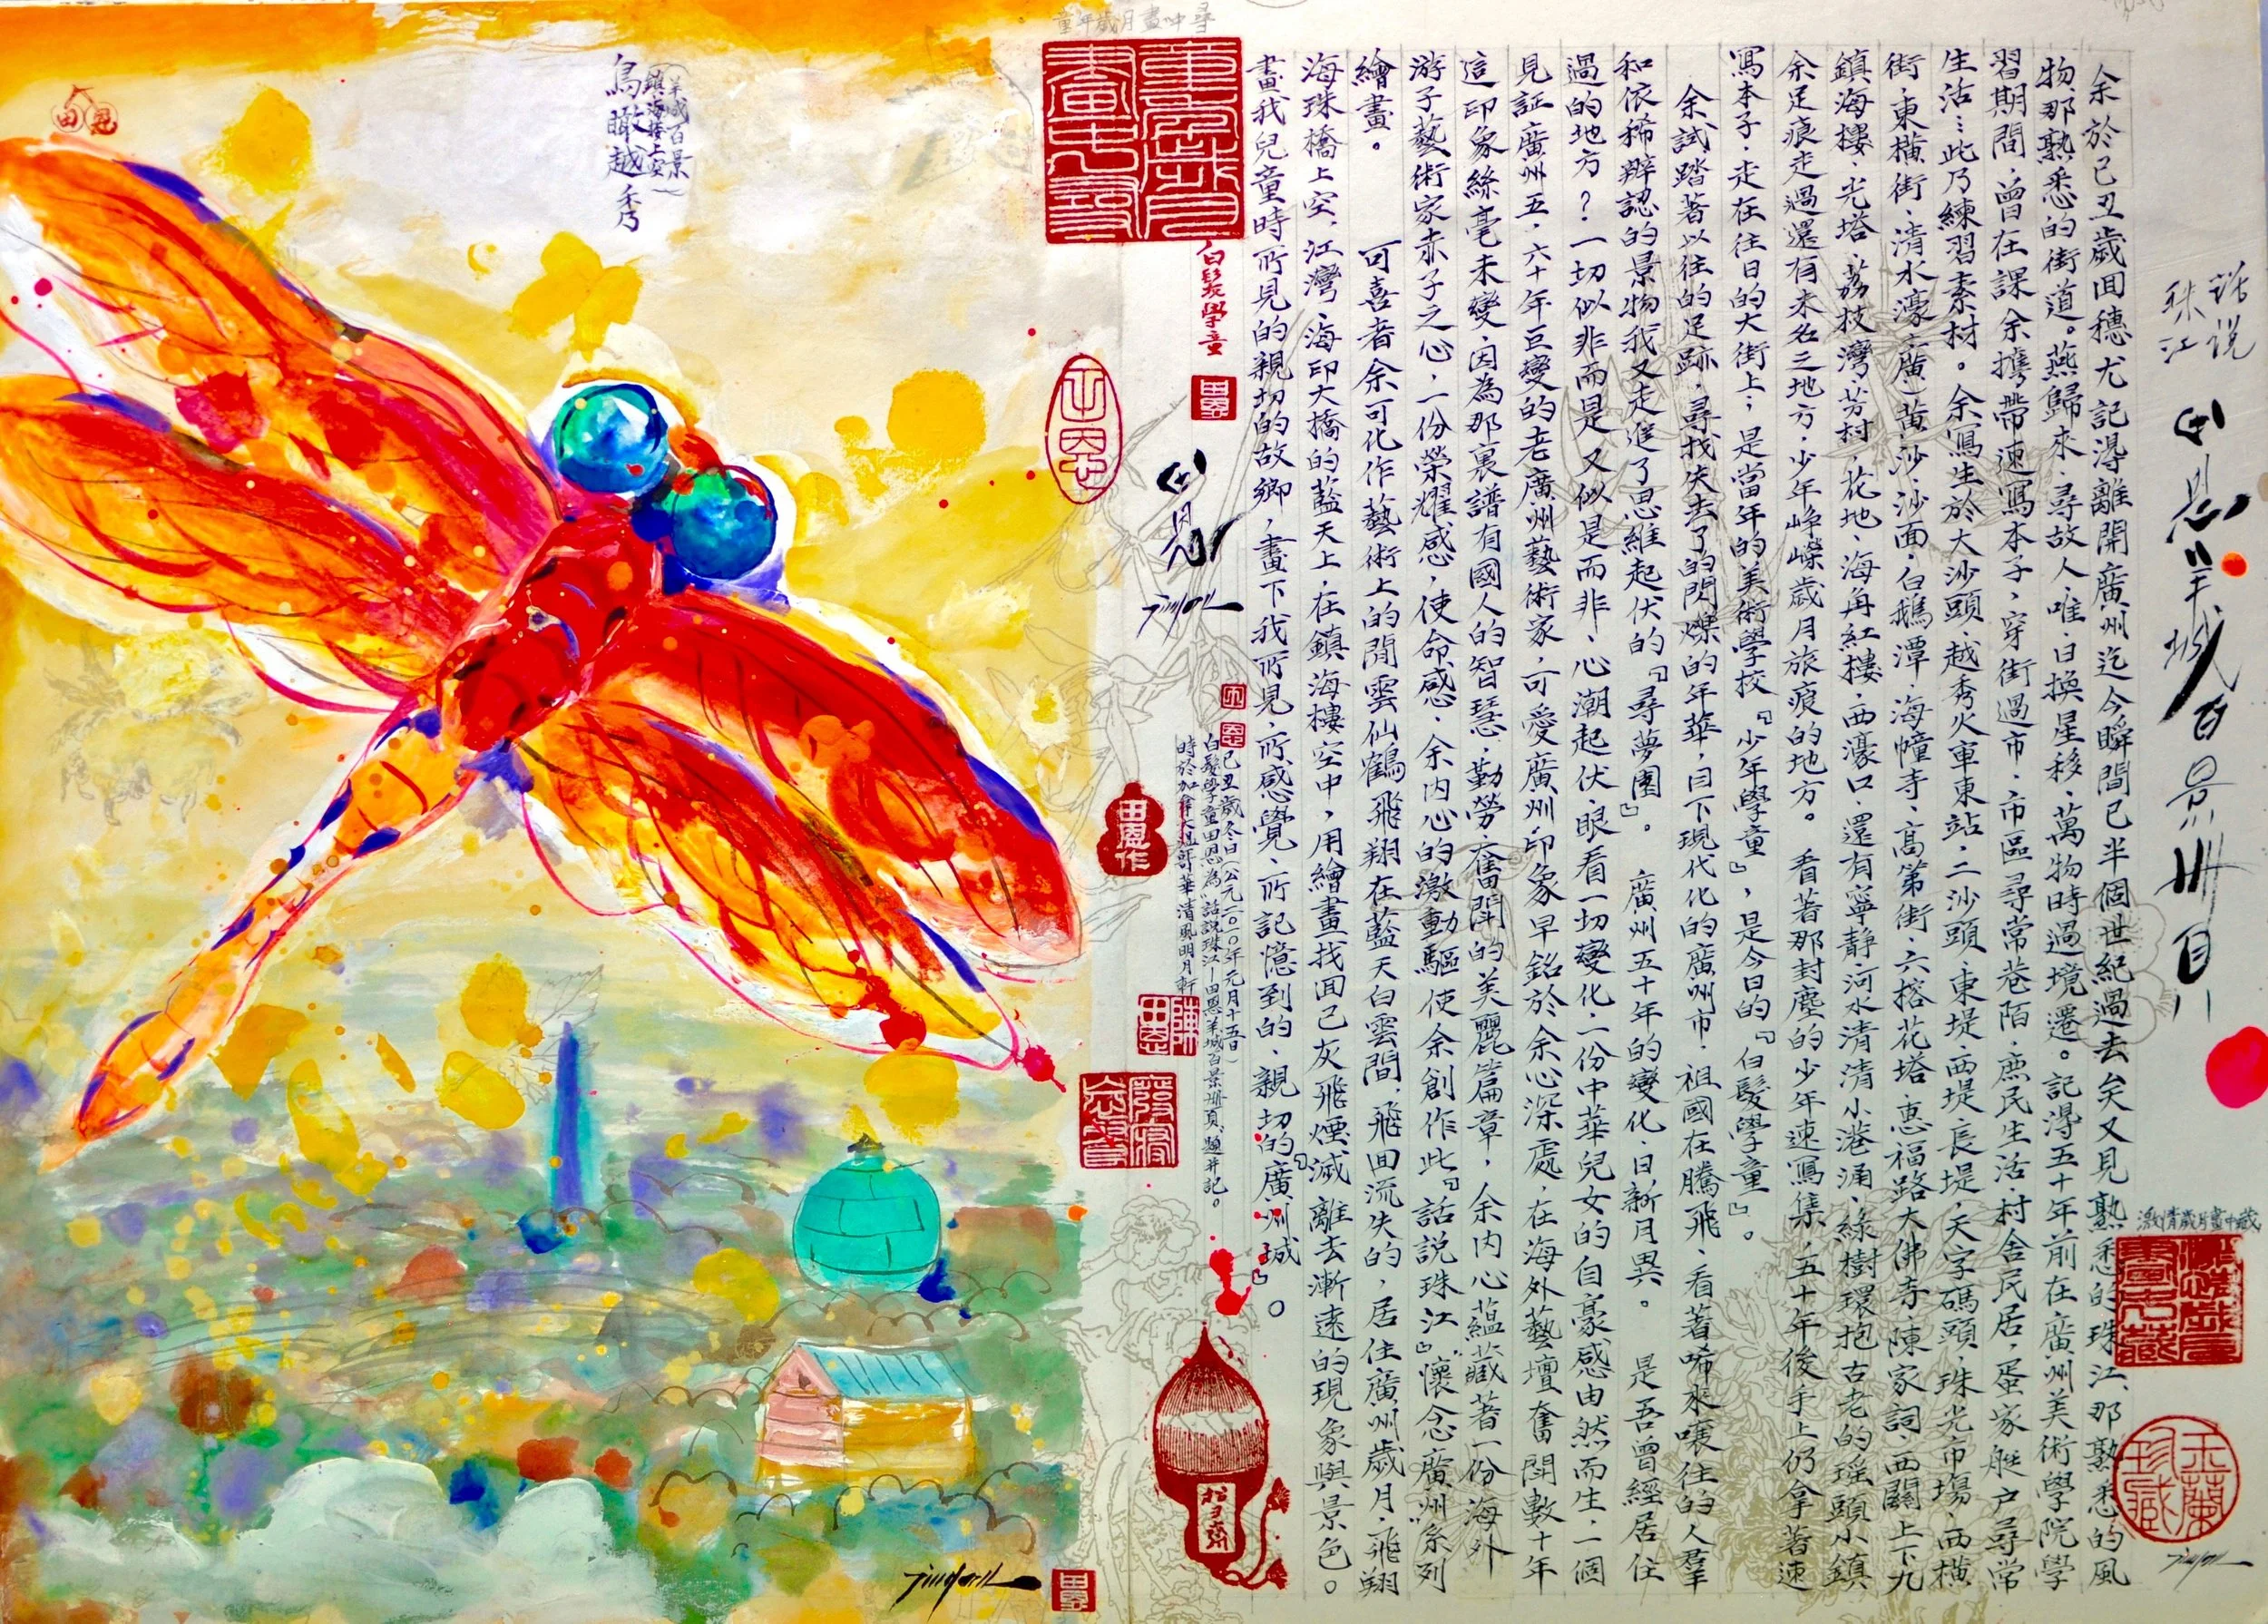 話説
珠江
田恩羊城百景冊頁
余於己丑歲回穗尤記得離開廣州迄今瞬間已半個世紀過去矣又見熟悉的珠江、那熟悉的風
物、那熟悉的街道。燕歸來、尋故人、唯、日換星移、萬物時過境遷。記得五十年前在廣州美術學院學
習期間，曾在課余攜帶速寫本子，穿街過市、市區尋常巷陌、庶民生活、村舍民居，蛋家艇户尋常
生活…此乃練習素材。余寫生於大沙頭、越秀火車東站、二沙頭、東堤、西堤、長堤、天字碼頭、珠光市場、西橫
街、東橫街、清水濠、廣、黃沙、沙面、白鵝潭、海幢寺、高第街、六榕花塔、惠福路大佛寺、陳家詞、西關上下九
鎮海樓、光塔、荔枝灣、芳村、花地、海角紅樓、西濠口、還有寧靜河水清清小港涌、綠樹環抱古老的瑤頭小鎮
余足痕走過還有未名之地方，少年崢嶸歲月旅痕的地方。看著那封塵的少年速寫集，五十年後手上仍拿著速
寫本子，走在往日的大街上；是當年的美術學校『少年學童』，是今日的『白髮學童』。
余試踏著以往的足跡，尋找失去了的閃爍的年華，目下現代化的廣州市，祖國在騰飛，看著唏來嚷往的人羣
和依稀辨認的景物我又走進了思維起伏的『尋夢園』。廣州五十年的變化，日新月異。是吾曾經居住
過的地方？一切似非而是又似是而非，心潮起伏，眼看一切變化，一份中華兒女的自豪感由然而生，一個
見証廣州五、六十年巨變的老廣州藝術家，可愛廣州印象早銘於余心深處，在海外藝壇奮鬥數十年
這印象絲毫未變，因為那裏譜有國人的智慧、勤勞、奮鬥的美麗篇章，余內心蘊藏著一份海外
游子藝術家赤子之心，一份榮耀感，使命感，余内心的激動驅使余創作此『話説珠江』懷念廣州系列
繪畫。可喜者余可化作藝術上的閒雲仙鶴飛翔在藍天白雲間，飛回流失的，居住廣州歲月，飛翔
海珠橋上空，江灣、海印大橋的藍天上，在鎮海樓空中，用繪畫找回己灰飛煙滅離去漸遠的現象與景色。
畫我兒童時所見的親切的故鄉，畫下我所見，所感覺，所記憶到的，親切的『廣州城』。
己丑歲冬日（公元二〇一〇年元月十五日）
白髮學童田恩為話説珠江—田恩羊城百景冊頁題并記。
時於加拿大温哥華清風明月軒
田恩
白髮學童
尋中畫月歲年童
童年歲月畫中尋
田恩
田恩作
陳田恩
羊城百景
鎮海樓上空
鳥瞰越秀
田恩
激情歲月畫中藏
激情歲月畫中藏
玉蘭珍藏
廢寢忘食